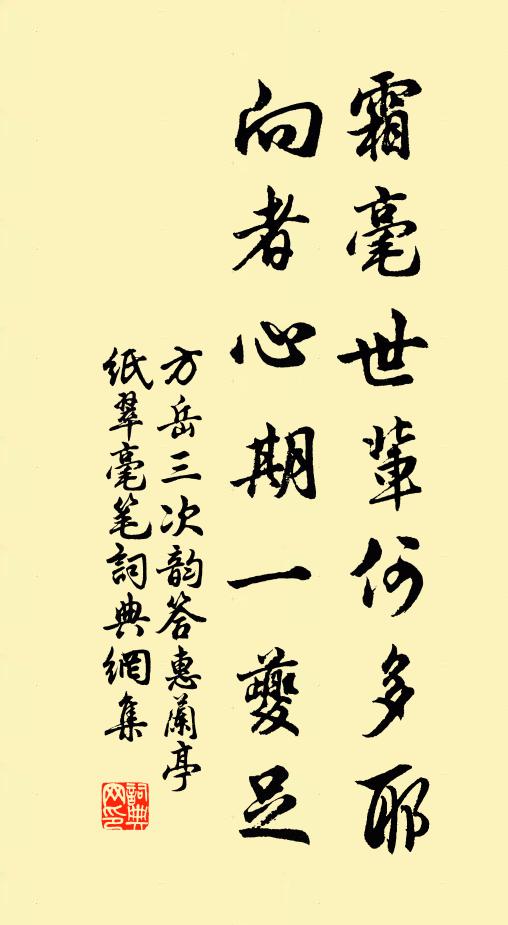 霜毫世輩何多耶
向者心期一夔足
方岳三次韵答惠蘭亭
紙翠毫笔詞典網集
詞典网印